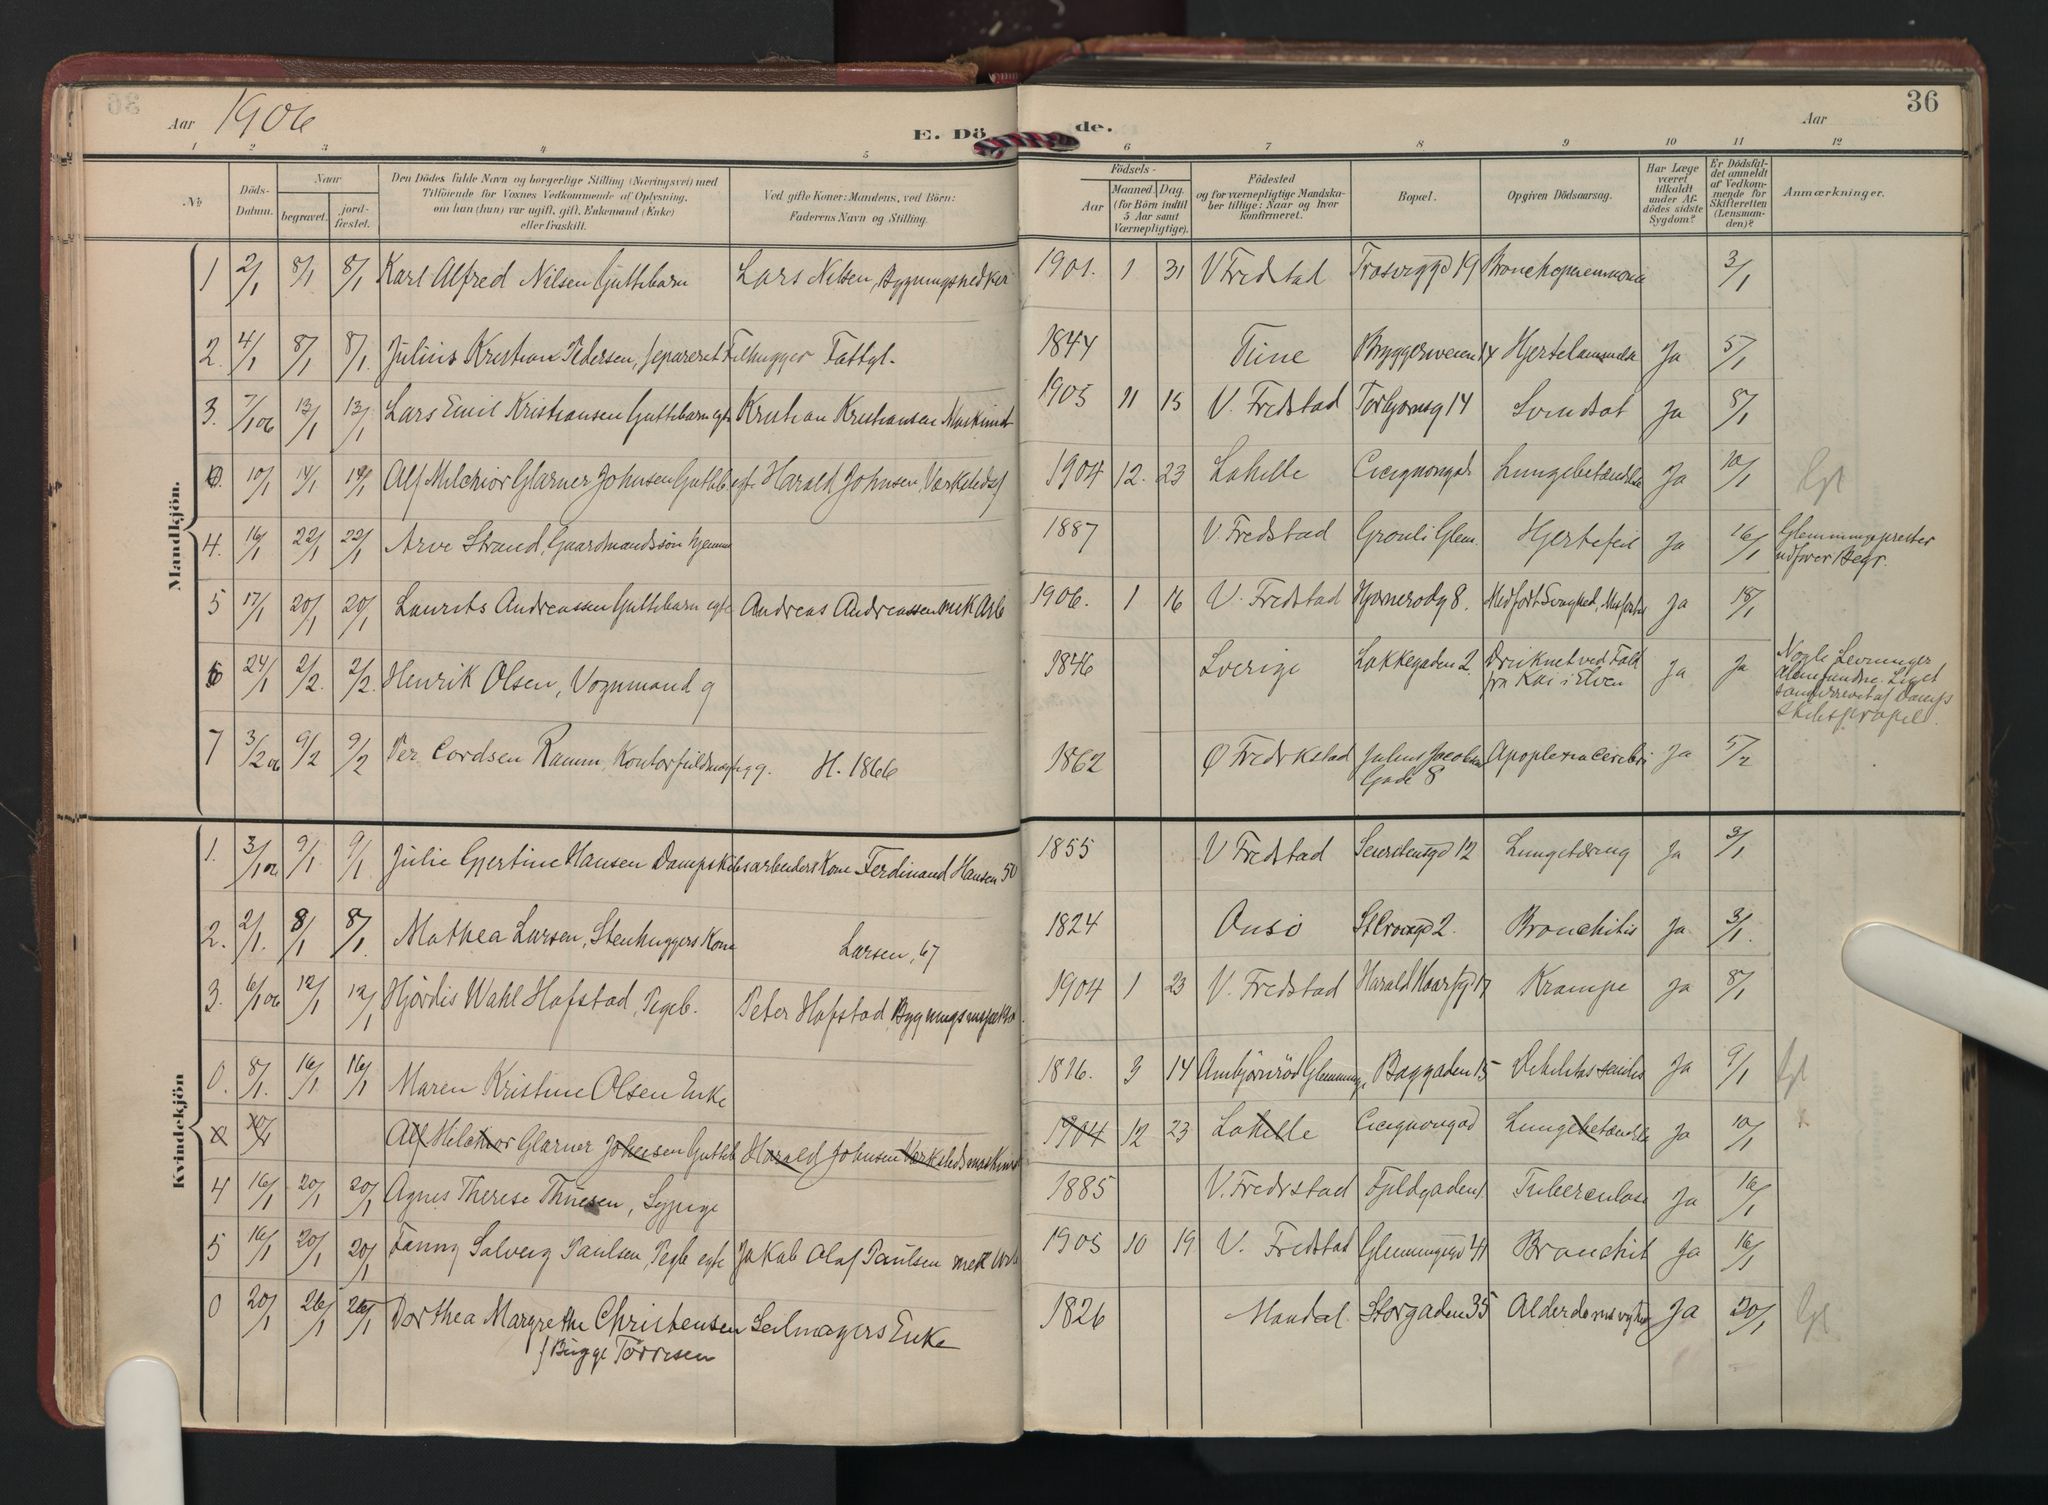 Aar 1906
E. Dö de.
Aar
36
1 2 3 4 5 6 7 8 9 10 11 12
№
Döds-Datum.
Naar
begravet.
jord-fæstet.
Den Dödes fulde Navn og borgerlige Stilling (Næringsvei) med
Tilföiende for Voxnes Vedkommende af Oplysning,
om han (hun) var ugift, gift, Enkemand (Enke)
eller fraskilt.
Ved gifte Koner: Mandens, ved Börn:
Faderens Navn og Stilling.
Födsels-
Aar
Maaned. Dag.
(for Börn indtil
5 Aar samt
Værnepligtige).
Födested
og for værnepligtige Mandska-
ber tillige: Naar og hvor
konfirmeret.
Bopæl.
Opgiven Dödsaarsag.
Har Læge
været
tilkaldt
under Af-
dödes sidste
Sygdom?
Er Dödsfal-
det anmeldt
af Vedkom-
mende for
Skifteretten
(Lensman-
den)?
Anmærkninger.
Mandkjön.
1 2/1 8/1 8/1 Karl Alfred Nilsen Guttebarn Lars Nilsen, Bygningssnedker 1901. 1 31 V Fredstad Trosviggd 19 Bronchopneumonia 3/1
2. 4/1 8/1 8/1 Julius Kristian Pedersen, separeret Filhugger Fattgl. 1844 Tune Bryggeriveien 14 Hjertelammelse Ja 5/1
3. 7/1 06 13/1 13/1 Lars Emil Kristiansen Guttebarn egte Kristian Kristiansen Maskinist 1905 11 15 V. Fredstad Torbjørnsg 14 Svindsot Ja 8/1
0. 10/1 14/1 14/1 Alf Milchior Glarner Johnsen Gutteb egt. Harald Johnsen, Værkstedsf 1904 12. 23 Lahille Cicignongad Lungebetændelse Ja 10/1
4. 16/1 22/1 22/1 Arve Strand, Gaardmandssøn hjemme 1887 V. Fredstad Grönli Glem. Hjertefeil Ja 16/1 Glemmingeprester
udfører Begr.
5 17/1 20/1 20/1 Laurits Andreassen Guttebarn egte Andreas Andreassen mek Arb 1906. 1 16 V. Fredstad Hjørnerødg 8. Medfødt Svaghed, Ja 18/1
6 24/1 2/2. 2/2. Henrik Olsen, Vognmand g 1846 Sverige Løkkegaden 2. Druknet ved Fald
fra Kai i Elven Ja Ja Nogle Levninger
7 3/2 06 9/2 9/2 Per Cordsen Ramm, Kontorfuldmægtig g. H. 1866 1862 Ø Fredrikstad Julius Jacobsen
Gade 8 Apoplexia cerebri Ja 5/2
Kvindekjön
1. 3/1 06 9/1. 9/1 Julie Gjertine Hansen Dampskibsarbeiders Kone Ferdinand Hansen 50 1855 V Fredstad 12 Lungetæring Ja 3/1
2. 2/1. 8/1 8/1 Mathea Larsen, Stenhuggers Kone Larsen, 67 1824 Onsø 2. Bronchitis Ja 3/1.
3. 6/1 06 12/1 12/1 Hjördis Wahl Hofstad, Pigeb. Peter Hofstad, Bygningsinspektør 1904 1 23 V. Fredstad Harald Haarfg 17 Krampe Ja 8/1
0. 8/1. 16/1 16/1 Maren Kristine Olsen Enke 1826. 3 14 Ambjörnröd Glemminge, Baggaden 15 Debilitas senilis Ja 9/1
10/1 Alf Milchior Glarner Johnsen Gutteb Harald Johnsen Værkstedsmaskinist 1904 12 23 Lahille Cicignongad Lungebetændelse Ja 10/1
4 16/1 20/1 20/1 Agnes Therese Thuesen, Sypige 1885 V. Fredrstad Fjeldgaden 1. Tuberculose Ja 16/1
5 16/1 20/1 20/1 Fanny Solveig Paulsen, Pigb egte Jakob Olaf Paulsen mek Arb 1905 10 19 V. Fredstad Glemmingegd 41 Bronchit Ja 16/1
0 20/1 26/1 26/1 Dorthea Margrethe Christensen Seilmagers Enke
f Bugge Torresen 1826 Mandal Storgaden 35 Alderdomssvaghed Ja 20/1